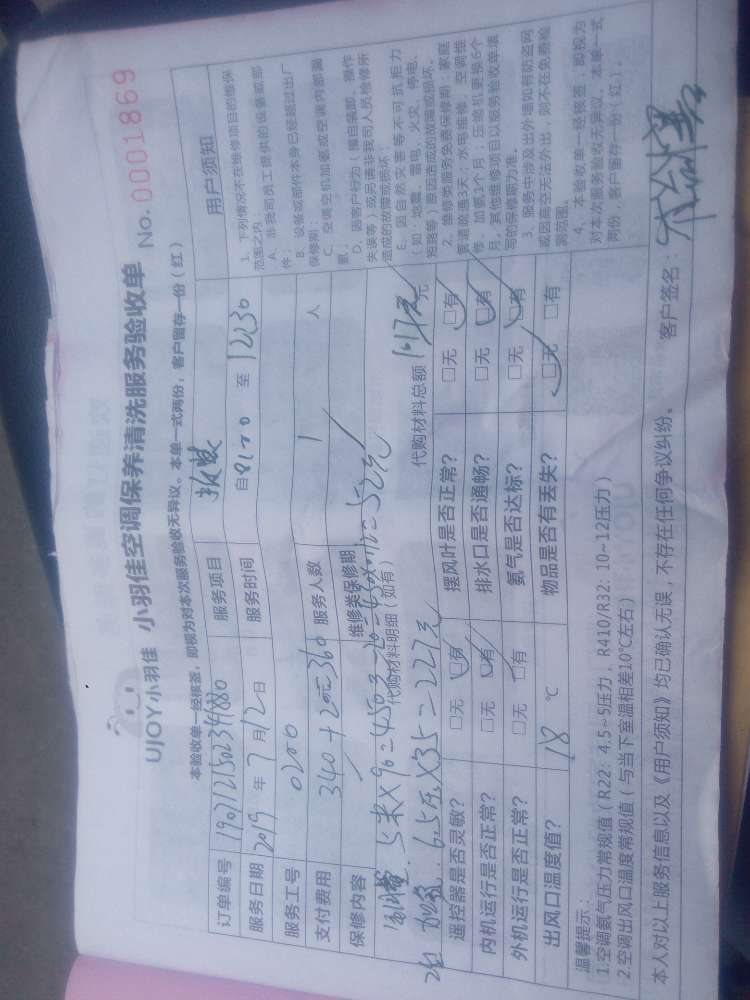 UJOY小羽佳 小羽佳空调保养清洗服务验收单 No. 0001869
本验收单一经核签，即视为对本次服务验收无异议。本单一式两份，客户留存一份（红）
订单编号 服务项目
服务日期 2019 年 7 月 12 日 服务时间 自 8:00 至 12:30
服务工号 0200
支付费用 服务人数 1 人
保修内容 维修类保修期
代购材料明细（如有）
加氟：
代购材料总额 元
遥控器是否灵敏？ □无 □有 摆风叶是否正常？ □无 □有
内机运行是否正常？ □无 □有 排水口是否通畅？ □无 □有
外机运行是否正常？ □无 □有 氨气是否达标？ □无 □有
出风口温度值？ 18 ℃ 物品是否有丢失？ □无 □有
温馨提示：
1.空调氨气压力常规值（R22：4.5~5压力，R410/R32: 10~12压力）
2.空调出风口温度常规值（与当下室温相差10℃左右）
用户须知
1、下列情况不在维修项目的维保
范围之内：
A、非我司员工提供的设备或部
件；
B、设备或部件本身已经超过出厂
保修期；
C、空调空机加氨或空调内部漏
氨；
D、因客户行为（擅自装卸、操作
失误等）或另请非我司人员检修所
造成的故障或损坏；
E、因自然灾害等不可抗拒力
（如：地震、雷电、火灾、停电、
短路等）原因造成的故障或损坏。
2、维修类服务免费保修期：家庭
管道疏通3天；水电维修、空调维
修、加氨1个月；压缩机更换6个
月，其他维修项目以服务验收单填
写的保修期为准。
3、服务中涉及出外墙如有防盗网
或因高空无法外出，则不在免费检
测范围。
4、本验收单一经核签，即视为
对本次服务验收无异议。本单一式
两份，客户留存一份（红）。
本人对以上服务信息以及《用户须知》均已确认无误，不存在任何争议纠纷。 客户签名：